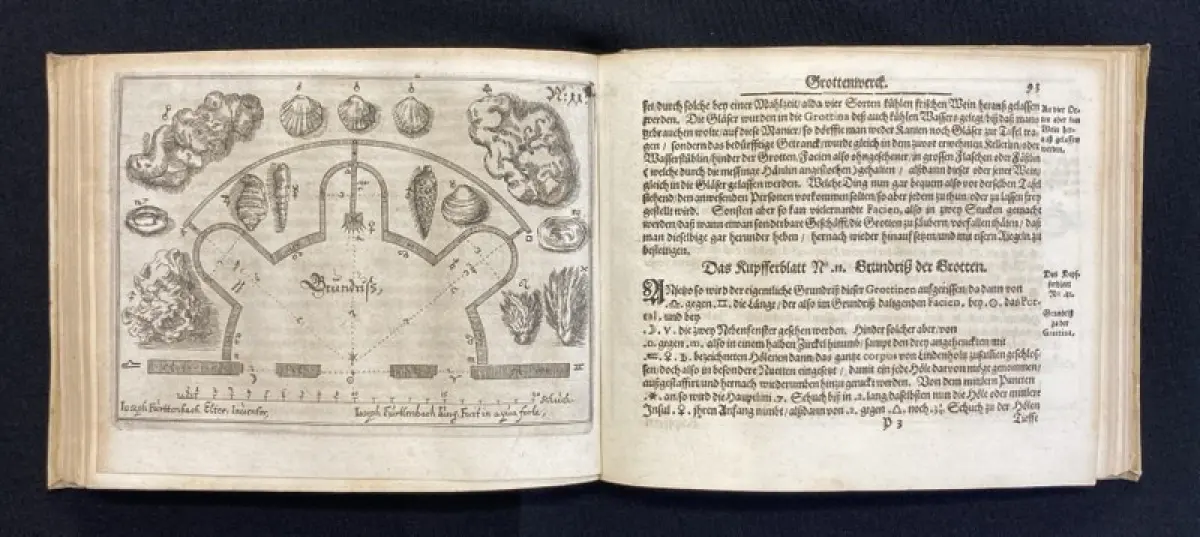 Nº: 11.
Grundriß,
Schüch
Joseph Furttenbach Elter, Inuentor,
Joseph Furttenbach Jüng. Fecit in aqua forte,
Grottenwerck. 93
sei/durch solche bey einer Mahlzeit/alda vier Sorten kühlen frischen Wein herauß gelassen
werden. Die Gläser wurden in die Grottina deß auch kühlen Wassers gelegt/biß daß mans
gebrauchen wolte/auf diese Manier/so dörffte man weder Kanten noch Gläser zur Tafel tra-
gen/sondern das bedürfftige Getranck/wurde gleich in dem zuvor erwehnten Kellerlin/oder
Wasserstüblin/hinder der Grotten/Facien also ohngesehener/in grossen Flaschen oder Fäßlin
(welche durch die messinge Hänlin angestochen) gehalten/alßdann dieser oder jener Wein/
gleich in die Gläser gelassen werden. Welche Ding nun gar bequem also vor derselben Tafel
stehend/den anwesenden Personen vorkommen sollen/so aber jedem zu thun/oder zu lassen frey
gestellt wird. Sonsten aber so kan vielernandte Facien, also in zwey Stucken gemacht
werden/daß wann etwan sonderbare Geschäfft/die Grotten zu säubern/vorfallen thäten/daß
man dieselbige gar herunder heben/hernach wieder hinauf setzen/und mit eisern Riegeln zu
befestigen.
An vier Or-
ten aber kan
Wein her-
auß gelassen
werden.
Das Kupfferblatt Nº. 11. Grundriß der Grotten.
ANjetzo so wird der eigentliche Grundriß dieser Grottinen aufgerissen/da dann von
.♎. gegen .♊. die Länge/der also im Grundriß daligenden Facien, bey .☉. das Por-
tal, und bey
.☽. V. die zwey Nebenfenster gesehen werden. Hinder solcher aber/von
.n. gegen .m. also in einem halben Zirckel hinumb/sampt den drey angehenckten mit
bezeichneten Hölenen dann/das gantze corpus von Lindenholtz zusamen geschlos-
sen/doch also in besondere Nuetten eingesetzt/damit ein jede Höle darvon möge genommen/
außgestaffirt und hernach wiederumben hinzu geruckt werden. Von dem mittlern Puncten
.*. an/so wird die Hauptlini .7. Schuch biß in .2. lang/daselbsten nun die Höle oder mittlere
Insul .♀. ihren Anfang nimbt/alßdann von .2. gegen .△. noch .3½ Schuch zu der Hölen
P 3 Tieffe
Das Kupf-
ferblatt
Grundriß
zu der
Grottina.